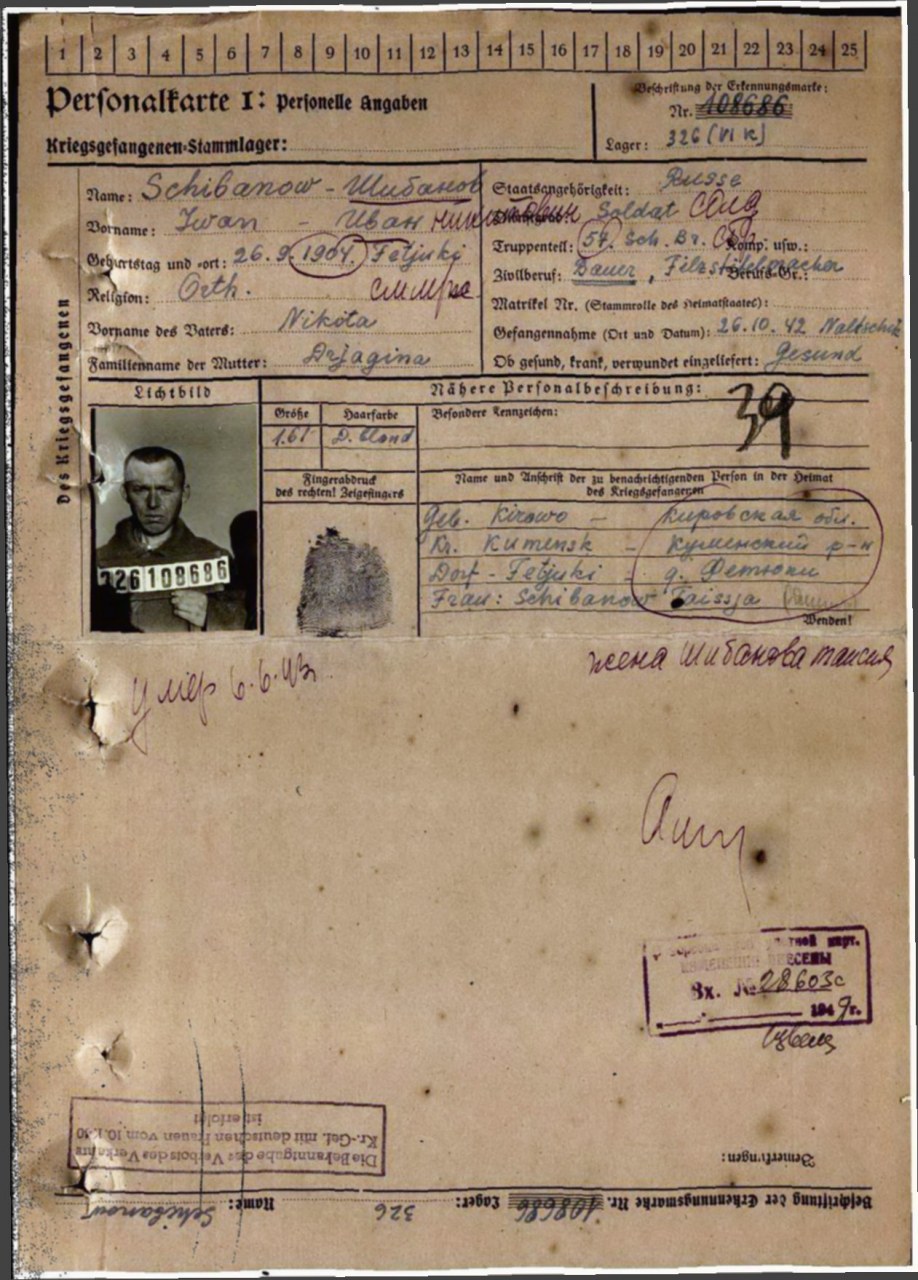 1 2 3 4 5 6 7 8 9 10 11 12 13 14 15 16 17 18 19 20 21 22 23 24 25
Personalkarte I: Personelle Angaben
Kriegsgefangenen-Stammlager:
Beschriftung der Erkennungsmarke:
Nr. 108686
Lager: 326 (VI K)
Des Kriegsgefangenen
Name: Schibanow - Шибанов
Vorname: Iwan - Иван
Geburtstag und -ort: 26.9.1904. Fetjuki
Religion: Orth.
Vorname des Vaters: Nikita
Familienname der Mutter: Derjagina
Staatsangehörigkeit: Russe
Soldat
Truppenteil: 57. Sch. Br. Komp. usw.:
Zivilberuf: Bauer, Filzstifelmacher Berufs-Gr.:
Matrikel Nr. (Stammrolle des Heimatstaates):
Gefangennahme (Ort und Datum): 26.10.42 Naltschik
Ob gesund, krank, verwundet eingeliefert: Gesund
Lichtbild
Nähere Personalbeschreibung:
Größe Haarfarbe
1.61 D. blond
Besondere Kennzeichen:
39
Fingerabdruck
des rechten! Zeigefingers
326 108686
Name und Anschrift der zu benachrichtigenden Person in der Heimat
des Kriegsgefangenen
Geb. Kirowo - Кировская обл.
Kr. Kumensk - Куменский р-н
Dorf - Fetjuki - д. Фетюки
Frau: Schibanow Taissja
Wenden!
жена Шибанова Таисия
умер 6.6.43.
карт.
ВНЕСЕНЫ
Вх. № 28603с
1949г.
Die Bekanntgabe des Verbots des Verkehrs
Kr.-Gef. mit deutschen Frauen vom 10.1.40
ist erfolgt
Bemerkungen:
Beschriftung der Erkennungsmarke Nr. 108686 Lager: 326 Name: Schibanow